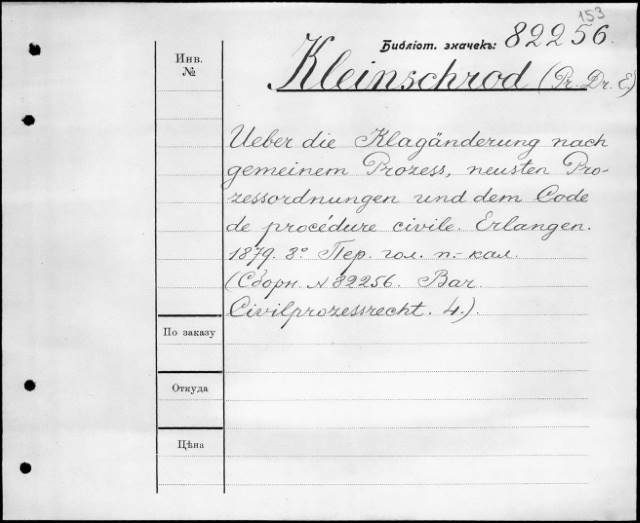 153
Библіот. значекъ: 82256.
Инв.
№
Kleinschrod (Pr. Dr. E)
Ueber die Klagänderung nach
gemeinem Prozess, neusten Pro-
zessordnungen und dem Code
de procédure civile. Erlangen.
1879. 8° Пер. гол. п.-кал.
(Сборн. № 82256. Bar.
Civilprozessrecht. 4.).
По заказу
Откуда
Цѣна